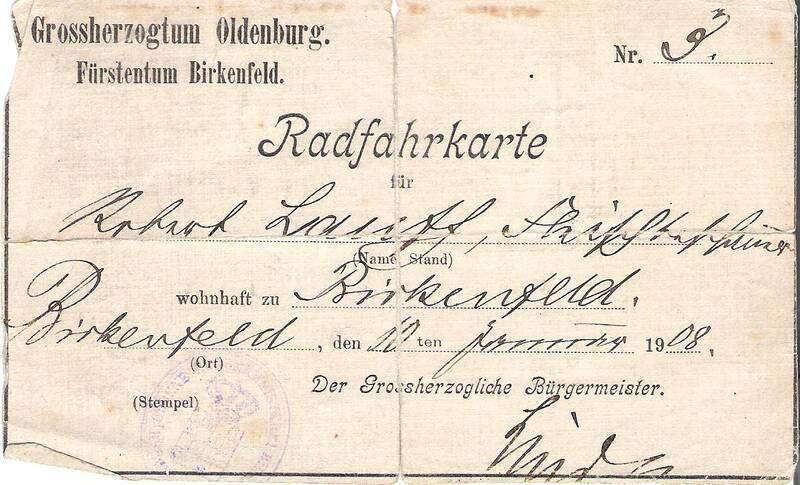 Grossherzogtum Oldenburg.
Fürstentum Birkenfeld.
Nr. 9.
Radfahrkarte
für
Robert Lauff, Fleischbeschauer
(Name Stand)
wohnhaft zu Birkenfeld.
Birkenfeld, den 10 ten Januar 1908.
(Ort)
Der Grossherzogliche Bürgermeister.
(Stempel)